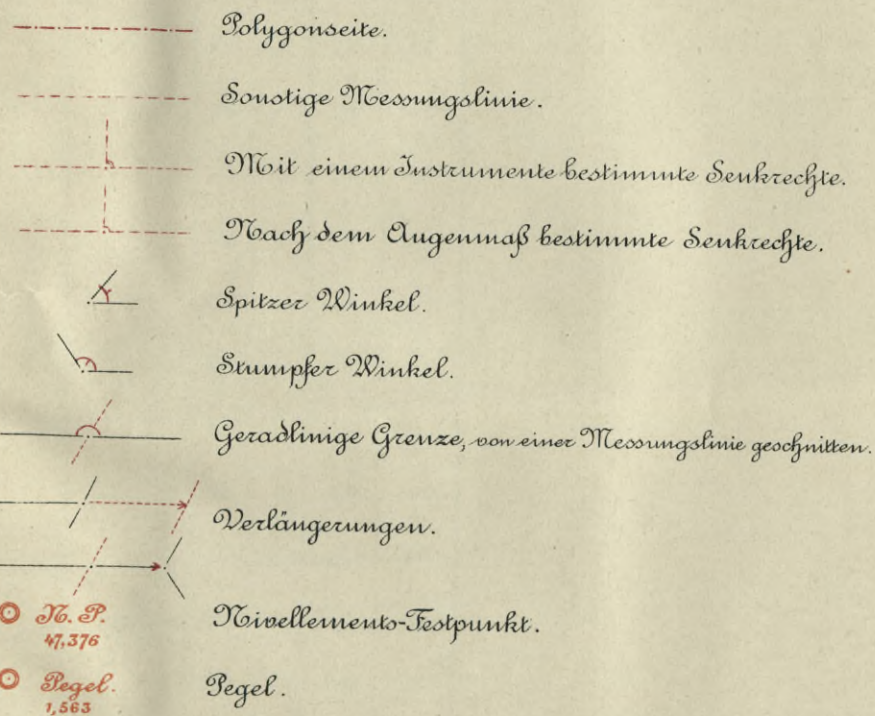 Polygonseite.
Sonstige Messungslinie.
Mit einem Instrumente bestimmte Senkrechte.
Nach dem Augenmaß bestimmte Senkrechte.
Spitzer Winkel.
Stumpfer Winkel.
Geradlinige Grenze, von einer Messungslinie geschnitten.
Verlängerungen.
N. P. Nivellements-Festpunkt.
47,376
Pegel. Pegel.
1,563